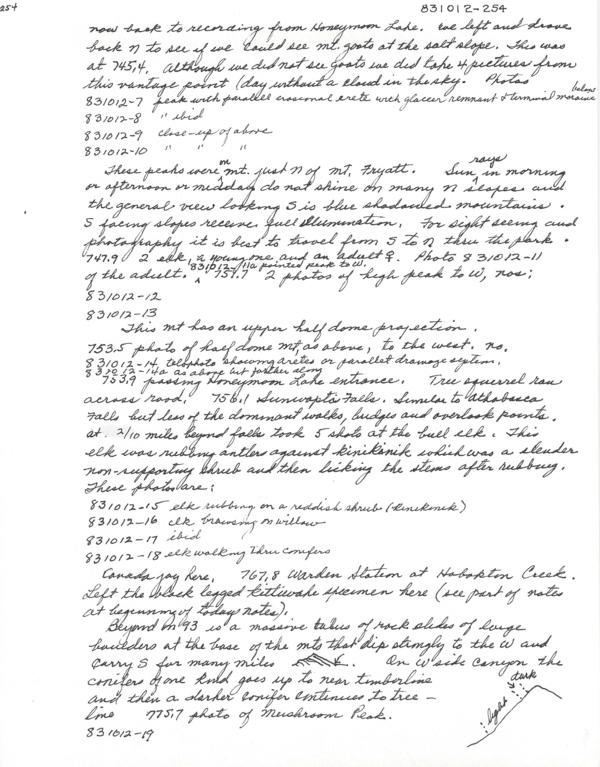 254
831012-254
now back to recording from Honeymoon Lake. We left and drove
back N to see if we could see mt. goats at the salt slope. This was
at 745.4. Although we did not see goats we did take 4 pictures from
this vantage point (day without a cloud in the sky. Photos
831012-7 peak with parallel erosional crete with glacier remnant & terminal moraine below
831012-8 " ibid
831012-9 close-up of above
831012-10 " " "
These peaks were on mt. just N of Mt. Fryatt. Sun rays in morning
or afternoon or midday do not shine on many N slopes and
the general view looking S is blue shadowed mountains.
S facing slopes receive full illumination. For sight seeing and
photography it is best to travel from S to N thru the park.
747.9 2 elk, a young one and an adult ♀. Photo 831012-11
of the adult. 831012-11a pointed peak to W. 751.7 2 photos of high peak to W, nos:
831012-12
831012-13
This mt has an upper half dome projection.
753.5 photo of half dome mt, as above, to the west. no.
831012-14 telephoto showing aretes or parallel drainage system.
831012-14a as above but farther along
753.9 passing Honeymoon Lake entrance. Tree squirrel ran
across road. 756.1 Sunwapta Falls. Similar to Athabasca
Falls but less of the dominant walks, bridges and overlook points.
at 2/10 miles beyond falls took 5 shots at the bull elk. This
elk was rubbing antlers against kinikinik which was a slender
non-supporting shrub and then licking the stems after rubbing.
These photos are:
831012-15 elk rubbing on a reddish shrub (kinikinik)
831012-16 elk browsing on willow
831012-17 ibid
831012-18 elk walking thru conifers
Canada jay here. 767.8 Warden Station at Hobokton Creek.
Left the black legged kittiwake specimen here (see part of notes
at beginning of today notes).
Beyond on 93 is a massive talus of rock slides of large
boulders at the base of the mts that dip strongly to the W and
carry S for many miles. On W side Canyon the
conifers of one kind goes up to near timberline
and then a darker conifer continues to tree-
line 775.7 photo of Mushroom Peak.
831012-19
light
dark